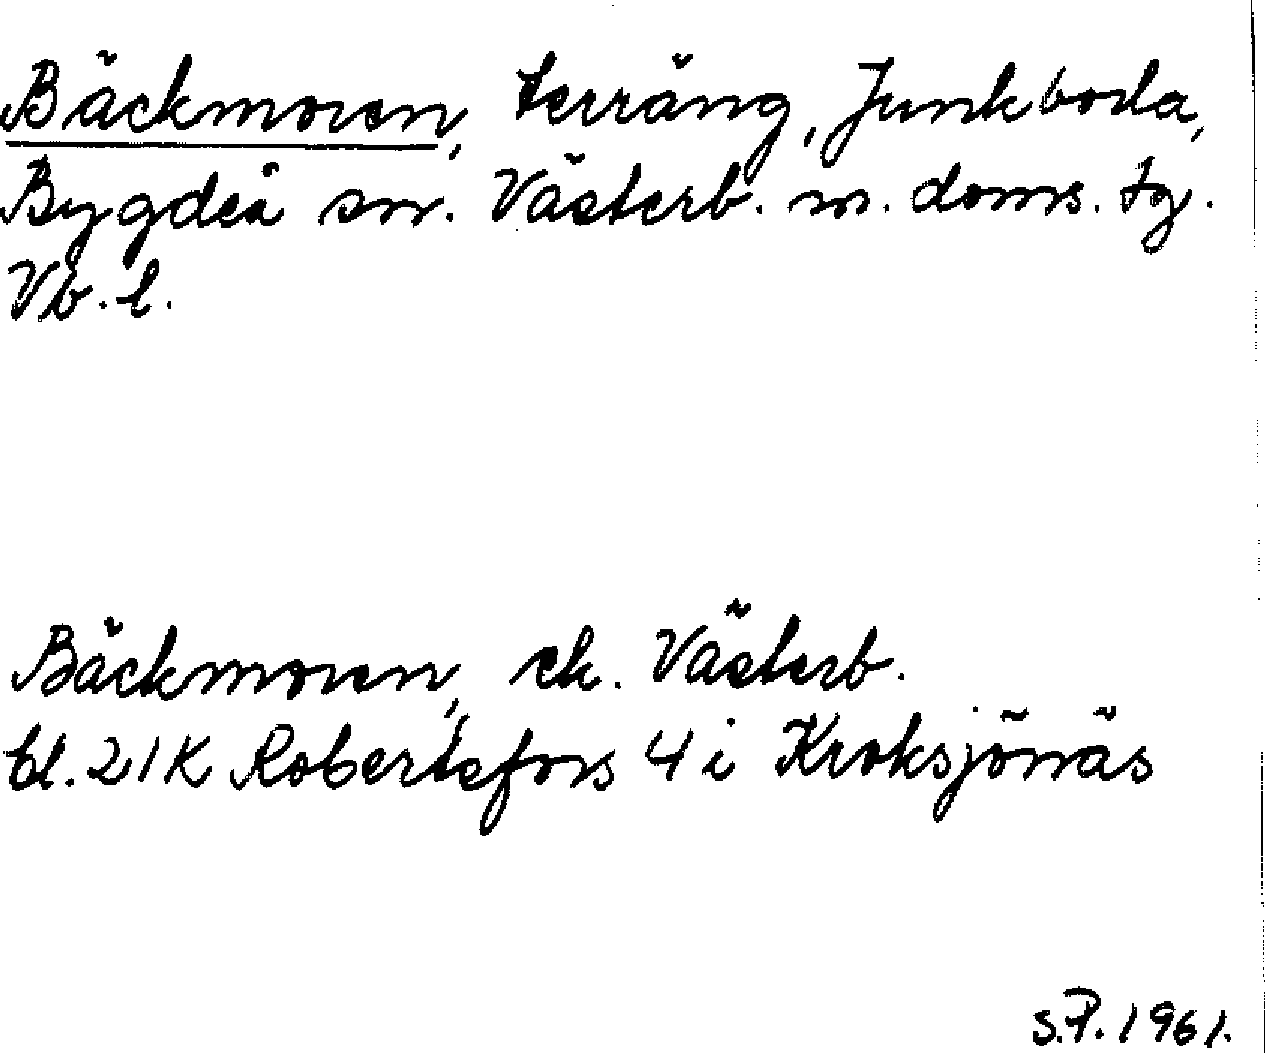 Bäckmoren, terräng, Junkboda,
Bygdeå sn. Västerb. n. doms. tg.
Vb. l.
Bäckmoren, ek. Västerb.
bl. 21K Robertsfors 4 i Kroksjönäs
S.P. 1961.